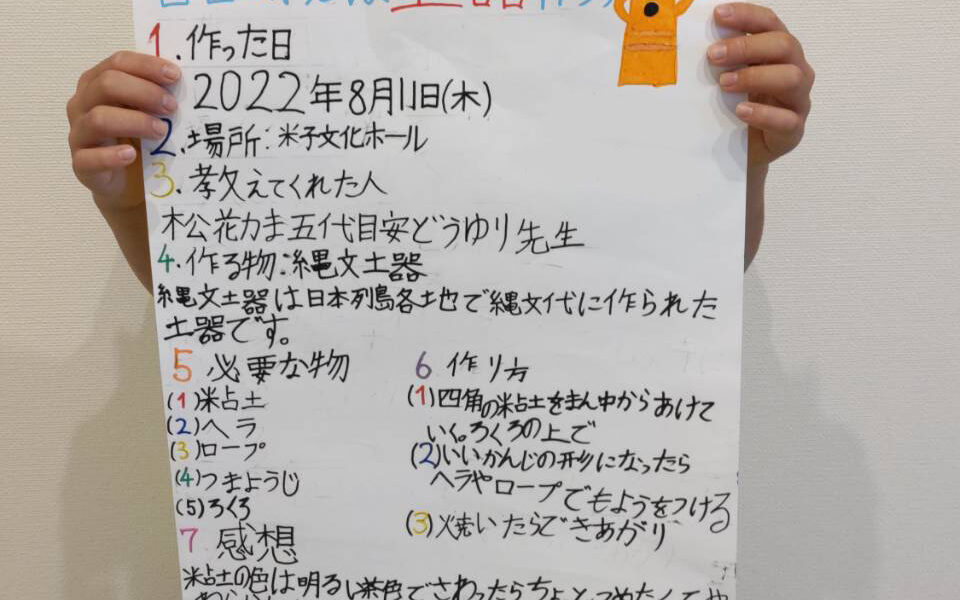 土器作り
1.作った日
2022年8月11日(木)
2.場所:米子文化ホール
3.教えてくれた人
松花がま五代目安どうゆり先生
4.作る物:縄文土器
縄文土器は日本列島各土也で縄文代に作られた
土器です。
5 必要な物
(1)粘土
(2)ヘラ
(3)ロープ
(4)つまようじ
(5)ろくろ
6 作り方
(1)四角の粘土をまん中からあけて
いく。ろくろの上で
(2)いいかんじの形になったら
ヘラやロープでもようをつける
(3)焼いたらできあがり
7 感想
粘土の色は明るい茶色でさわったらちょとつめたくてや